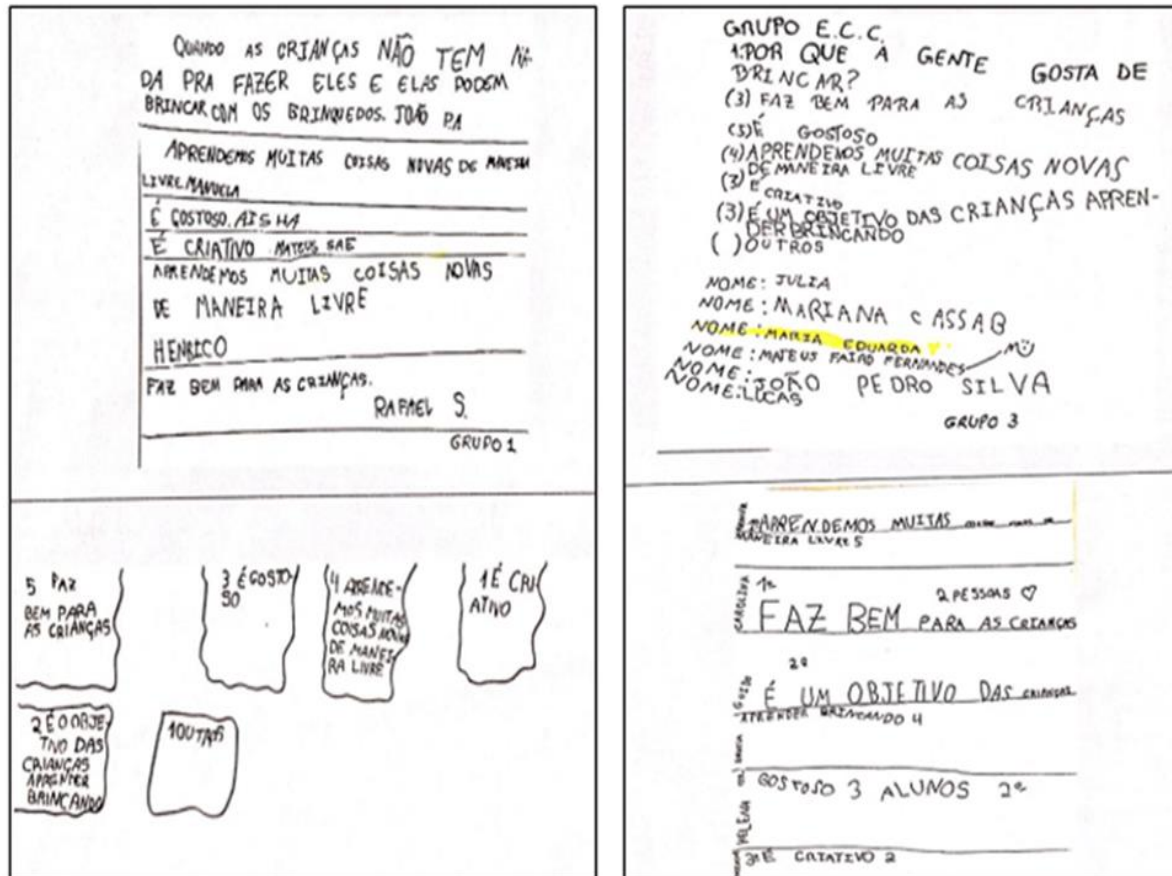 QUANDO AS CRIANÇAS NÃO TEM NA-
DA PRA FAZER ELES E ELAS PODEM
BRINCAR COM OS BRINQUEDOS. JOÃO P.A
APRENDEMOS MUITAS COISAS NOVAS DE MANEIRA
LIVRE MANUELA
É GOSTOSO. AISHA
É CRIATIVO MATEUS SAE
APRENDEMOS MUITAS COISAS NOVAS
DE MANEIRA LIVRE
HENRICO
FAZ BEM PARA AS CRIANÇAS.
RAFAEL S.
GRUPO 1
5 FAZ
BEM PARA
AS CRIANÇAS
3 É GOSTO-
SO
4 APRENDE-
MOS MUITAS
COISAS NOVAS
DE MANEI-
RA LIVRE
1 É CRI-
ATIVO
2 É O OBJE-
TIVO DAS
CRIANÇAS
APRENDER
BRINCANDO
1 OUTROS
GRUPO E.C.C.
1. POR QUE A GENTE GOSTA DE
BRINCAR?
(3) FAZ BEM PARA AS CRIANÇAS
(5) É GOSTOSO
(4) APRENDEMOS MUITAS COISAS NOVAS
DE MANEIRA LIVRE
(3) É CRIATIVO
(3) É UM OBJETIVO DAS CRIANÇAS APREN-
DER BRINCANDO
( ) OUTROS
NOME: JULIA
NOME: MARIANA C ASSAB
NOME: MARIA EDUARDA
NOME: MATEUS FAIRO FERNANDES
NOME: JOÃO PEDRO SILVA
NOME: LUCAS
GRUPO 3
APRENDEMOS MUITAS COISAS NOVAS DE
MANEIRA LIVRE 5
CAROLINA
1º
2 PESSOAS ♡
FAZ BEM PARA AS CRIANÇAS
2º
GUIDO
É UM OBJETIVO DAS CRIANÇAS
APRENDER BRINCANDO 4
GOSTOSO 3 ALUNOS 2º
3º É CRIATIVO 2